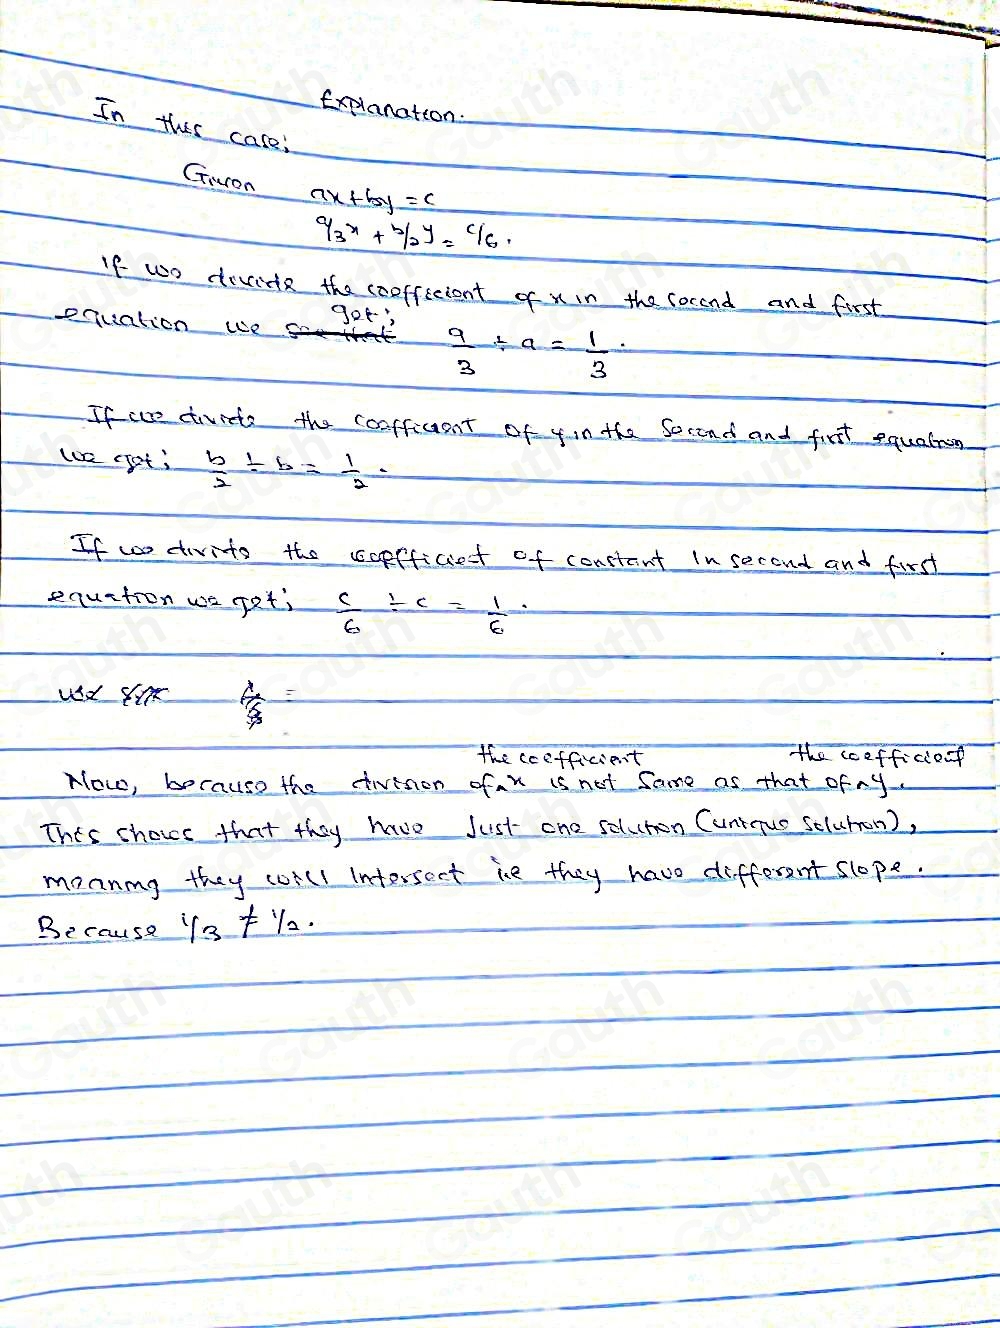 Explanation.
In this case;
Given ax+by=c
a/3x + b/2y = c/6.
If we divide the coefficient of x in the second and first
equation we get; a/3 ÷ a = 1/3.
If we divide the coefficient of y in the second and first equation
we get; b/2 ÷ b = 1/2.
If we divide the coefficient of constant in second and first
equation we get; c/6 ÷ c = 1/6.
Now, because the division of the coefficient x is not same as that of the coefficient y.
This shows that they have Just one solution (unique solution),
meaning they will intersect i.e they have different slope.
Because 1/3 ≠ 1/2.